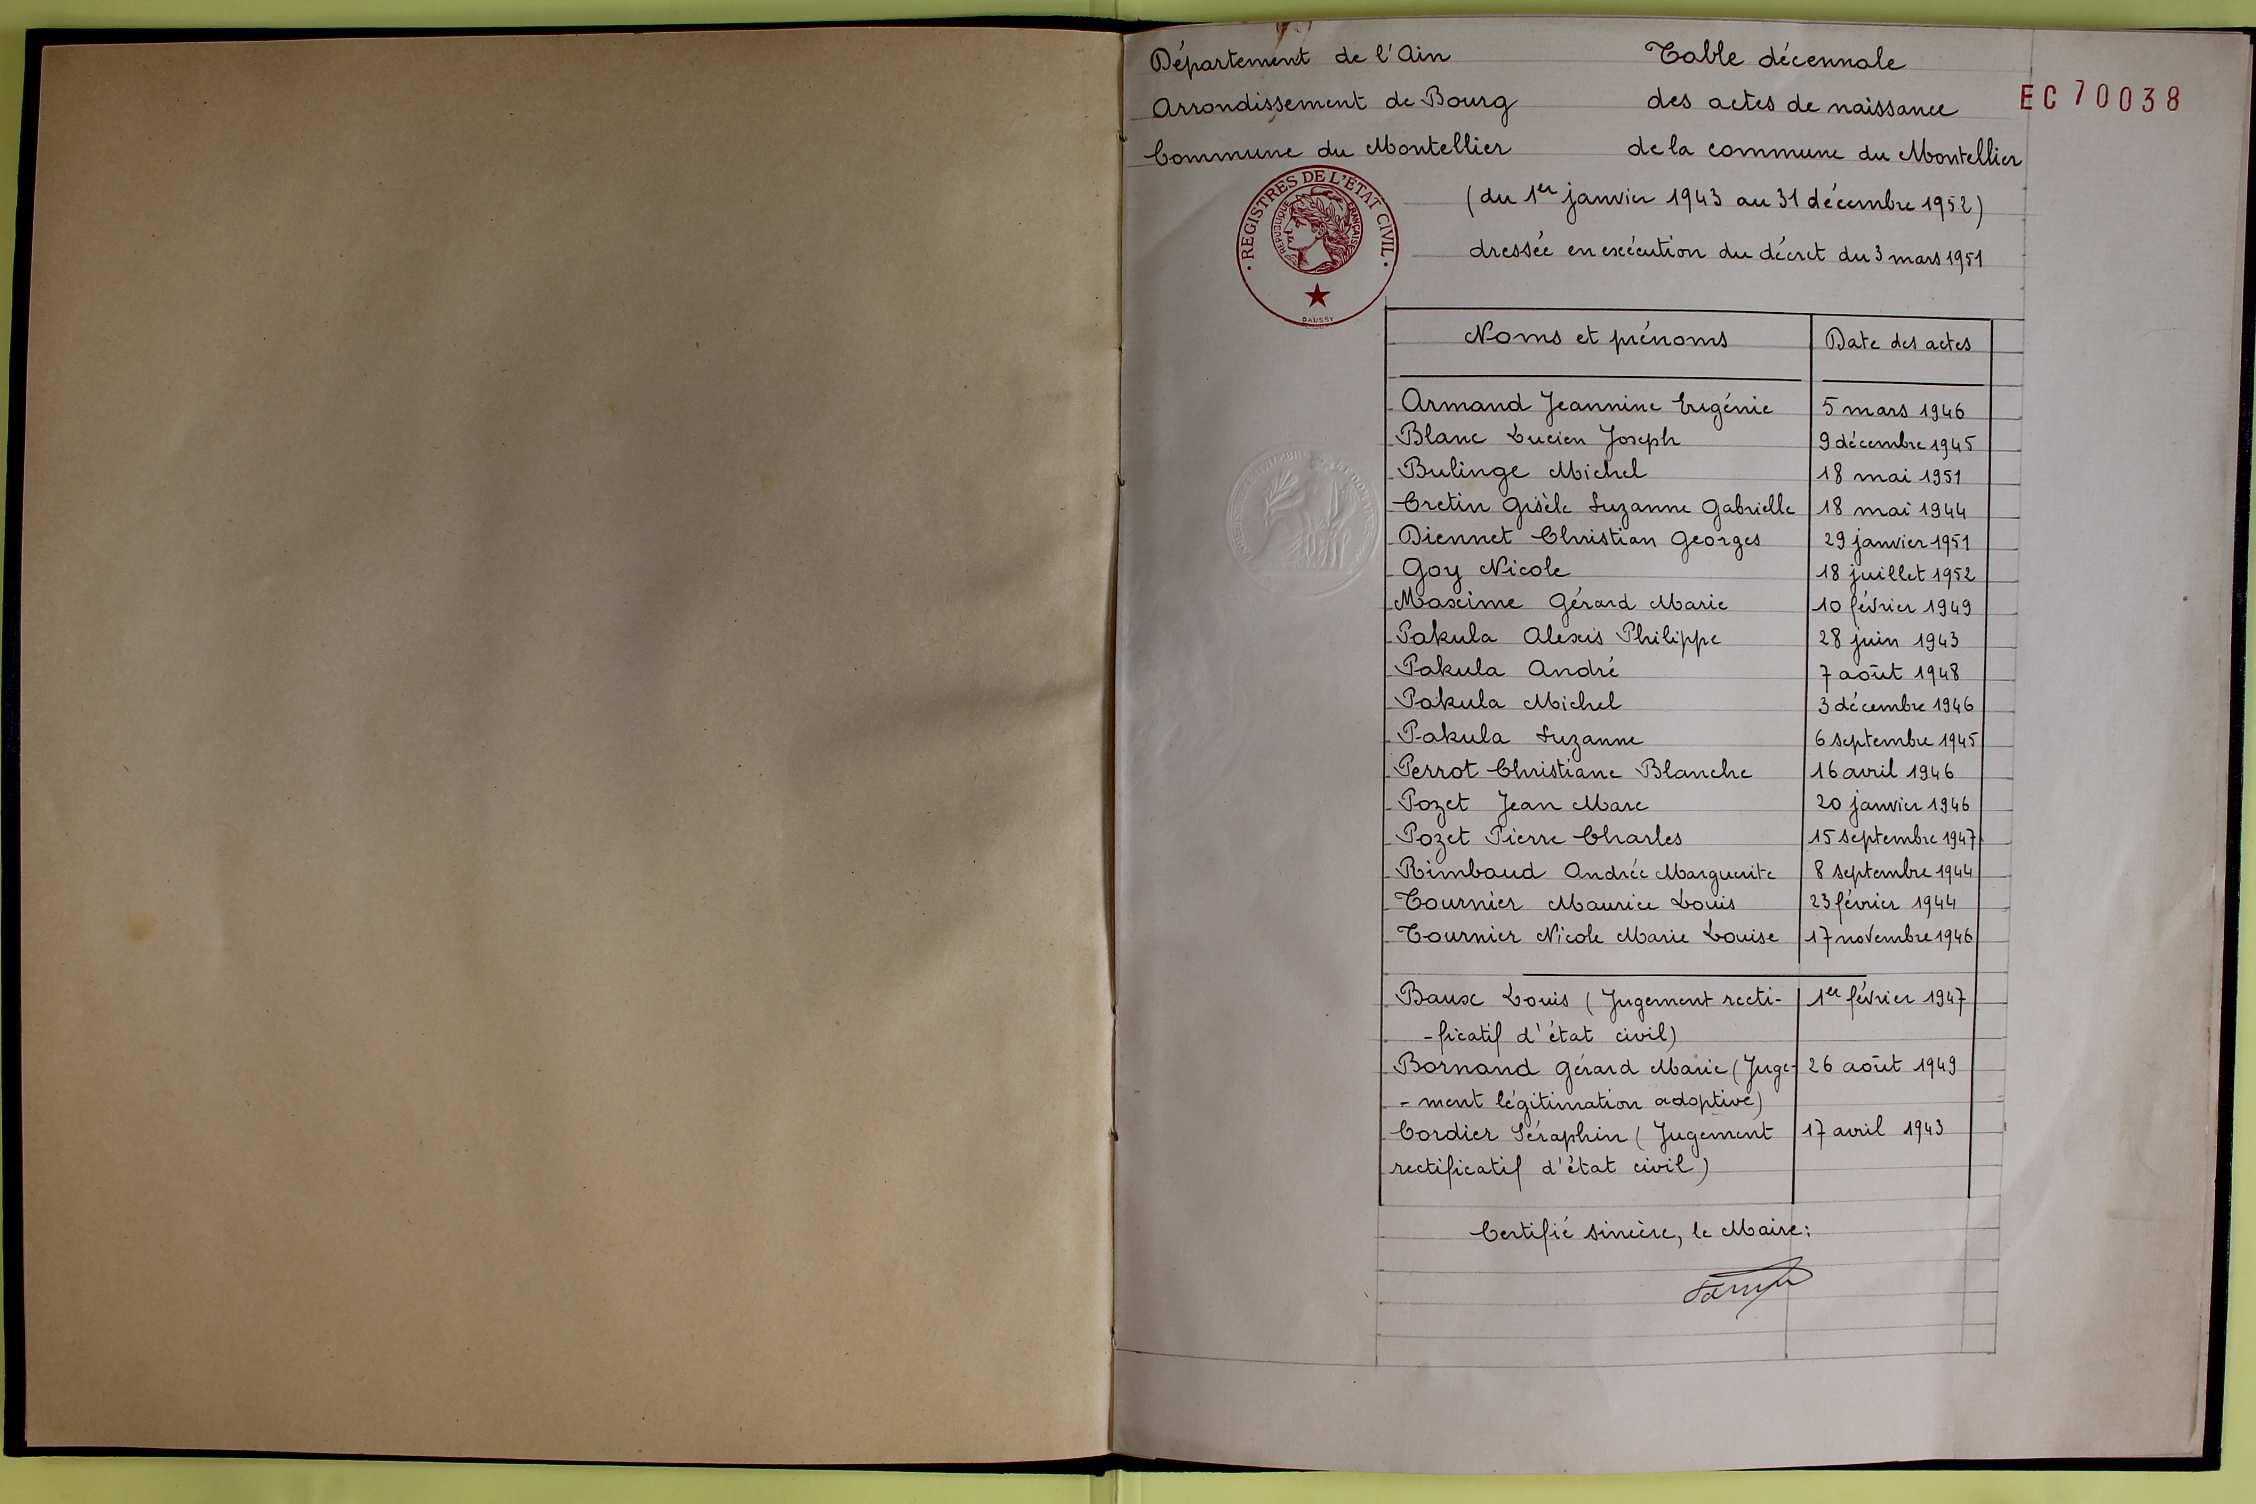 Département de l'Ain
Table décennale
Arrondissement de Bourg
des actes de naissance
EC 70038
Commune du Montellier
de la commune du Montellier
(du 1er janvier 1943 au 31 décembre 1952)
dressée en exécution du décret du 3 mars 1951
· REGISTRES DE L'ÉTAT CIVIL ·
REPUBLIQUE FRANÇAISE
DAUSSY
Noms et prénoms | Date des actes
Armand Jeannine Eugénie | 5 mars 1946
Blanc Lucien Joseph | 9 décembre 1945
Bulinge Michel | 18 mai 1951
Cretin Gisèle Suzanne Gabrielle | 18 mai 1944
Diennet Christian Georges | 29 janvier 1951
Goy Nicole | 18 juillet 1952
Maxime Gérard Marie | 10 février 1949
Pakula Alexis Philippe | 28 juin 1943
Pakula André | 7 août 1948
Pakula Michel | 3 décembre 1946
Pakula Suzanne | 6 septembre 1945
Perrot Christiane Blanche | 16 avril 1946
Pozet Jean Marc | 20 janvier 1946
Pozet Pierre Charles | 15 septembre 1947
Rimbaud Andrée Marguerite | 8 septembre 1944
Tournier Maurice Louis | 23 février 1944
Tournier Nicole Marie Louise | 17 novembre 1946
Baux Louis (Jugement recti- | 1er février 1947
-ficatif d'état civil)
Bornand Gérard Marie (Juge- | 26 août 1949
-ment légitimation adoptive)
Cordier Séraphin (Jugement | 17 avril 1943
rectificatif d'état civil)
Certifié sincère, le Maire: